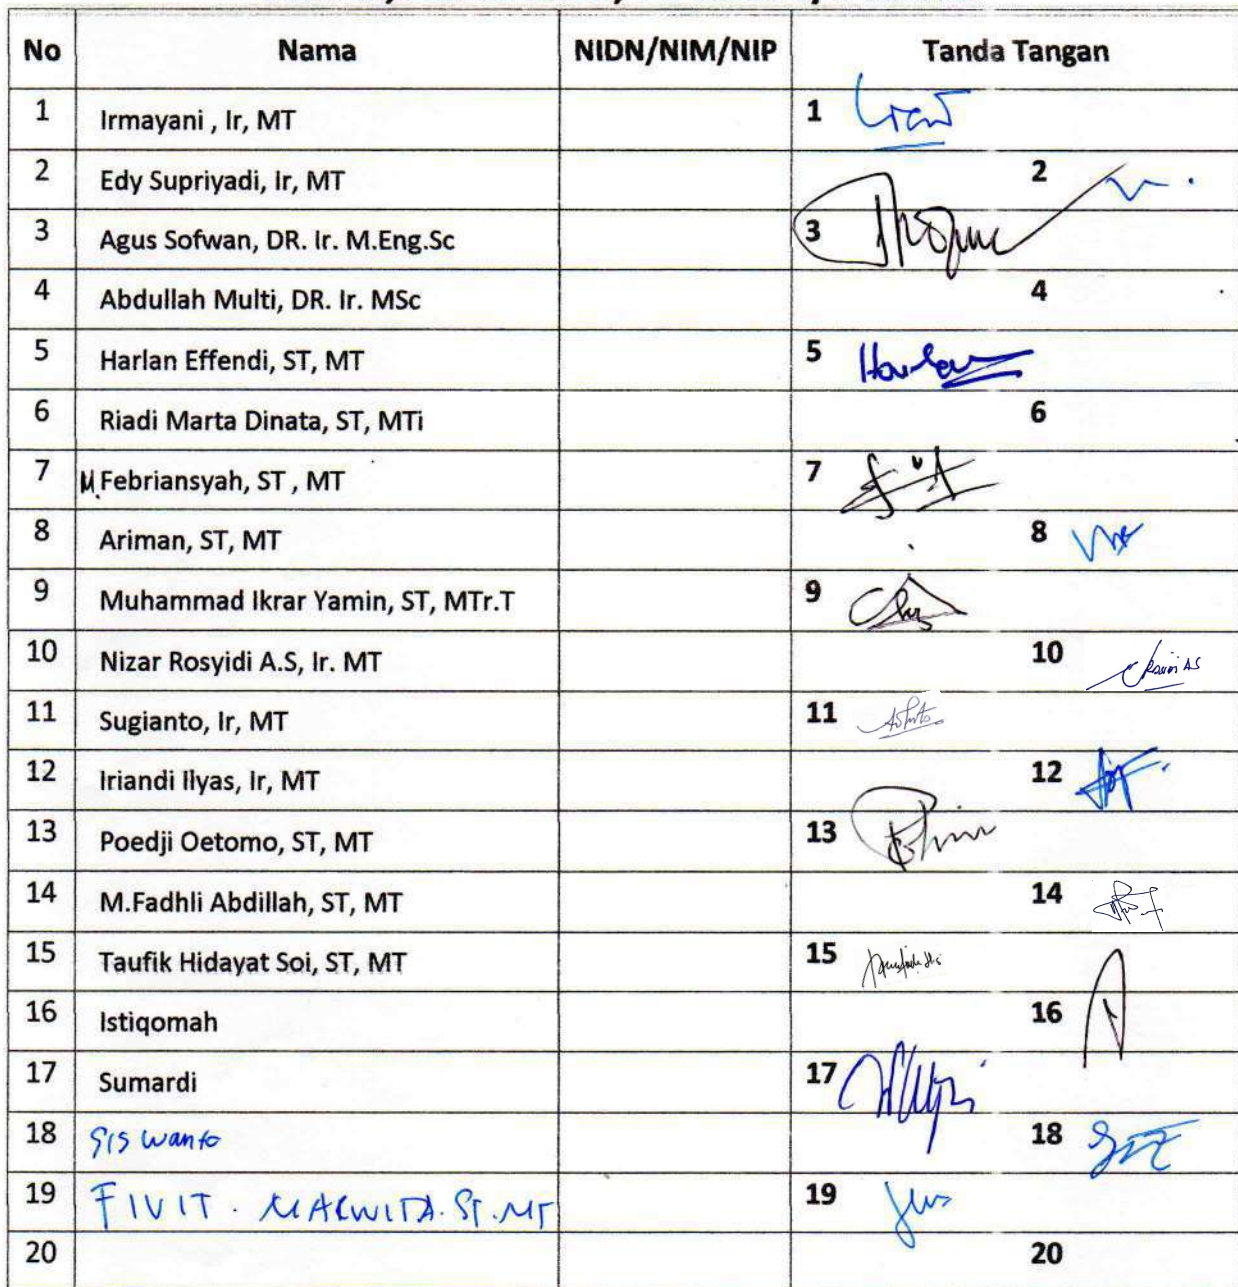 No Nama NIDN/NIM/NIP Tanda Tangan
1 Irmayani , Ir, MT 1
2 Edy Supriyadi, Ir, MT 2
3 Agus Sofwan, DR. Ir. M.Eng.Sc 3
4 Abdullah Multi, DR. Ir. MSc 4
5 Harlan Effendi, ST, MT 5 Harlan
6 Riadi Marta Dinata, ST, MTi 6
7 M.Febriansyah, ST , MT 7
8 Ariman, ST, MT 8
9 Muhammad Ikrar Yamin, ST, MTr.T 9
10 Nizar Rosyidi A.S, Ir. MT 10
11 Sugianto, Ir, MT 11
12 Iriandi Ilyas, Ir, MT 12
13 Poedji Oetomo, ST, MT 13
14 M.Fadhli Abdillah, ST, MT 14
15 Taufik Hidayat Soi, ST, MT 15
16 Istiqomah 16
17 Sumardi 17
18 Siswanto 18
19 FIVIT . MARWITA. ST. MT 19
20 20